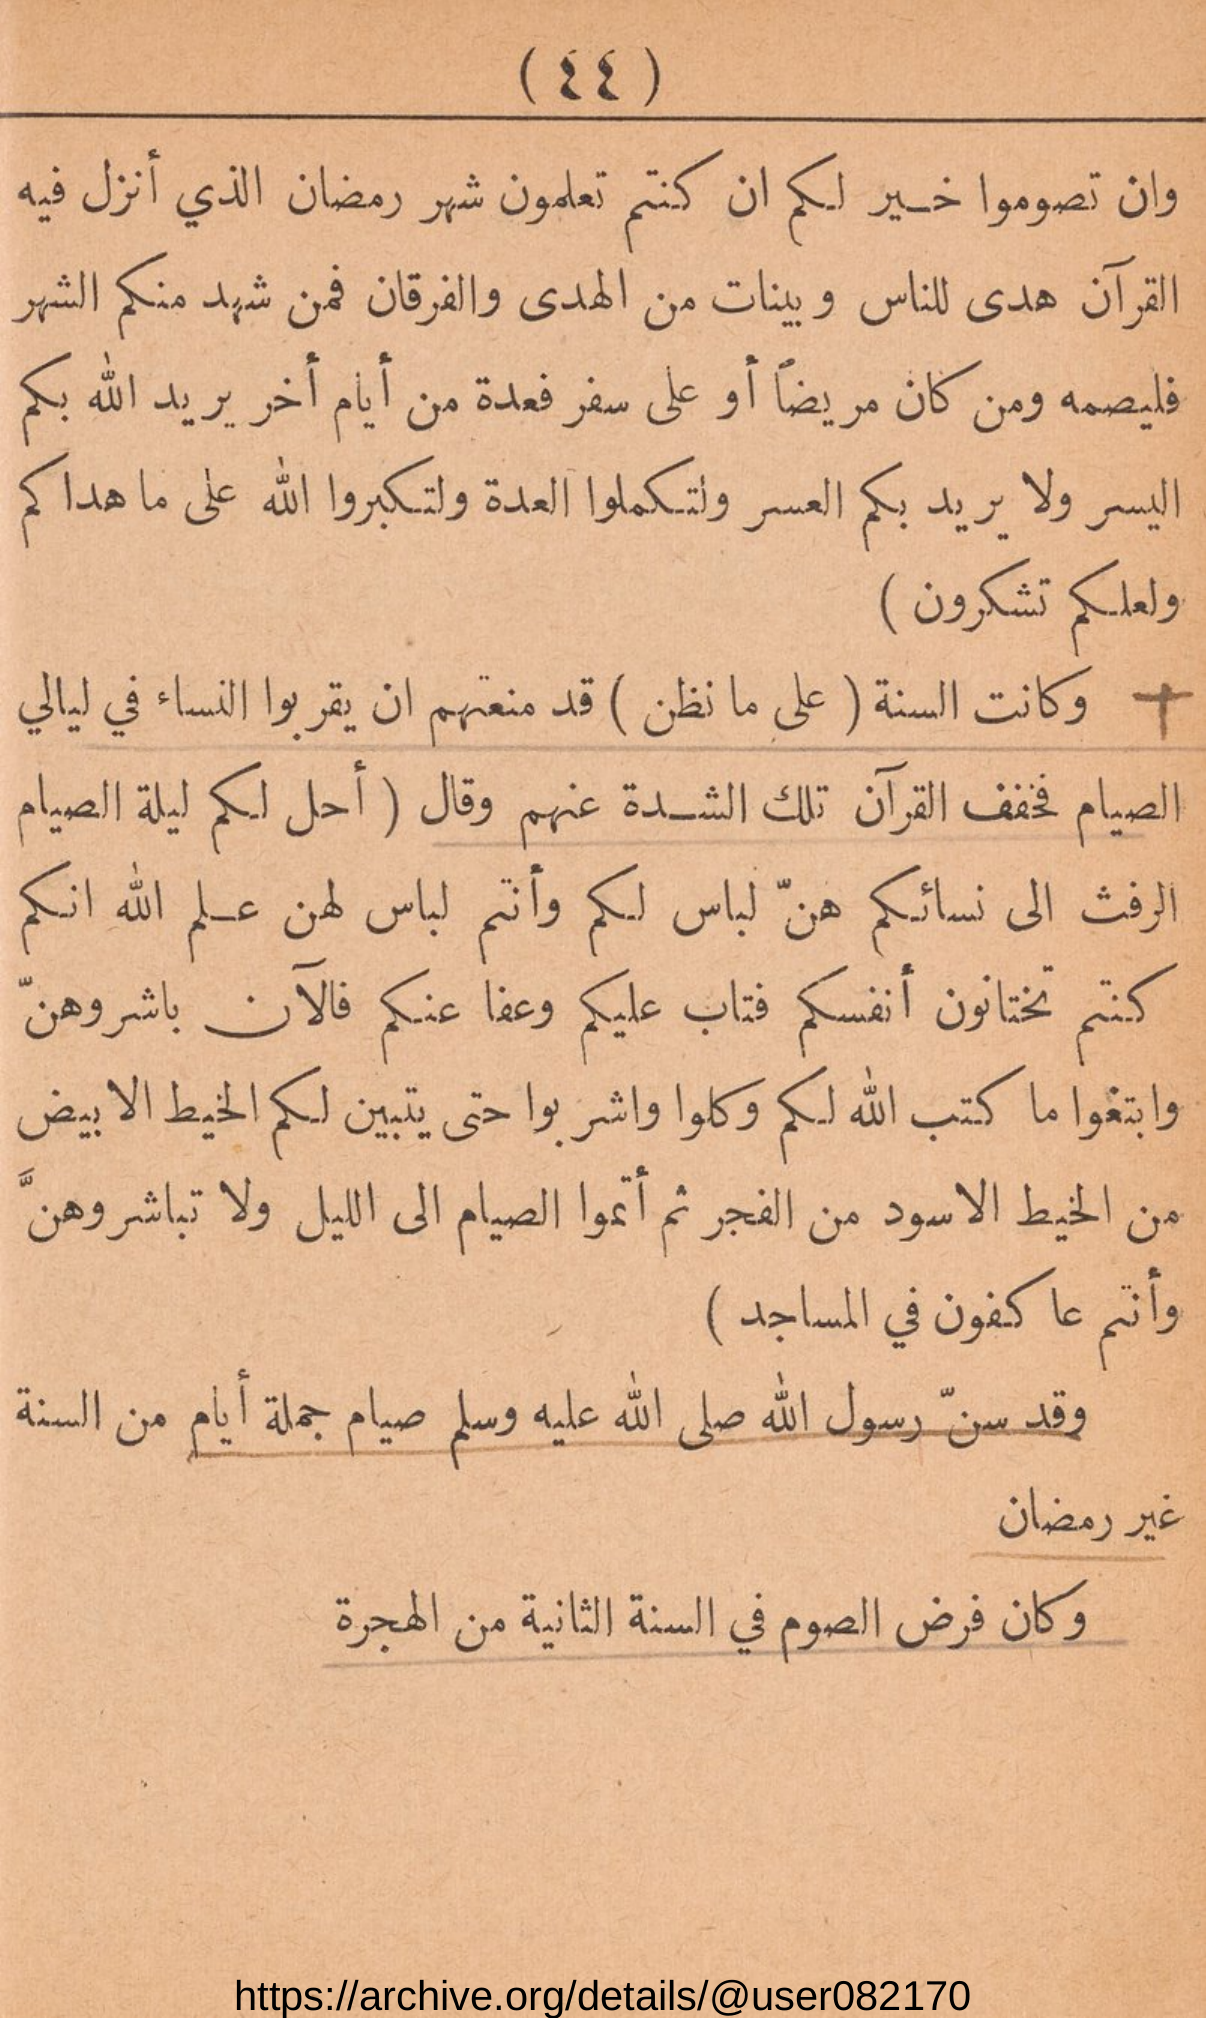 ( ٤٤ )
وان تصوموا خير لكم ان كنتم تعلمون شهر رمضان الذي أنزل فيه
القرآن هدى للناس وبينات من الهدى والفرقان فمن شهد منكم الشهر
فليصمه ومن كان مريضاً أو على سفر فعدة من أيام أخر يريد الله بكم
اليسر ولا يريد بكم العسر ولتكملوا العدة ولتكبروا الله على ما هداكم
ولعلكم تشكرون )
وكانت السنة ( على ما نظن ) قد منعتهم ان يقربوا النساء في ليالي
الصيام فخفف القرآن تلك الشدة عنهم وقال ( أحل لكم ليلة الصيام
الرفث الى نسائكم هنّ لباس لكم وأنتم لباس لهن علم الله انكم
كنتم تختانون أنفسكم فتاب عليكم وعفا عنكم فالآن باشروهنّ
وابتغوا ما كتب الله لكم وكلوا واشربوا حتى يتبين لكم الخيط الابيض
من الخيط الاسود من الفجر ثم أتموا الصيام الى الليل ولا تباشروهنَّ
وأنتم عاكفون في المساجد )
وقد سنّ رسول الله صلى الله عليه وسلم صيام جملة أيام من السنة
غير رمضان
وكان فرض الصوم في السنة الثانية من الهجرة
https://archive.org/details/@user082170